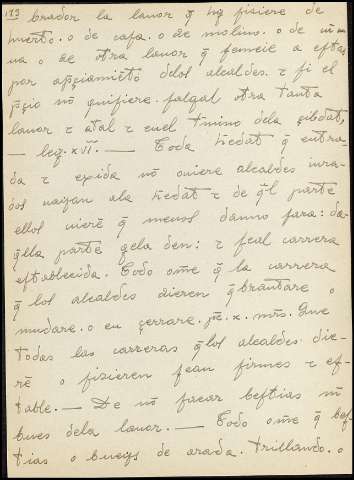 173 brador la lauor q̃ hy fisiere de
huerto. o de casa. o de molino. o de uin
na o de otra lauor q̃ semeie a estas
por apc̃iamiẽto delos alcaldes. τ si el
pc̃io nõ quisiere. fagal otra tanta
lauor τ atal τ en el tmino dela çibdat,
— ley. xvii. — Toda hedat q̃ entra-
da τ exida nõ ouiere alcaldes iura-
dos uayan ala hedat τ de q̃l parte
ellos uierẽ q̃ menos danno fara: da-
q̃lla parte gela den: τ seal carrera
establecida. Todo omẽ q̃ la carrera
q̃ los alcaldes dieren q̃brantare o
mudare. o en çerrare. pc̃. x. mr̃s. Que
todas las carreras q̃ los alcaldes die-
rẽ o fizieren sean firmes τ es-
table. — De nõ sacar bestias nĩ
bues dela lauor. — Todo omẽ q̃ bes-
tias o bueys de arada. trillando. o